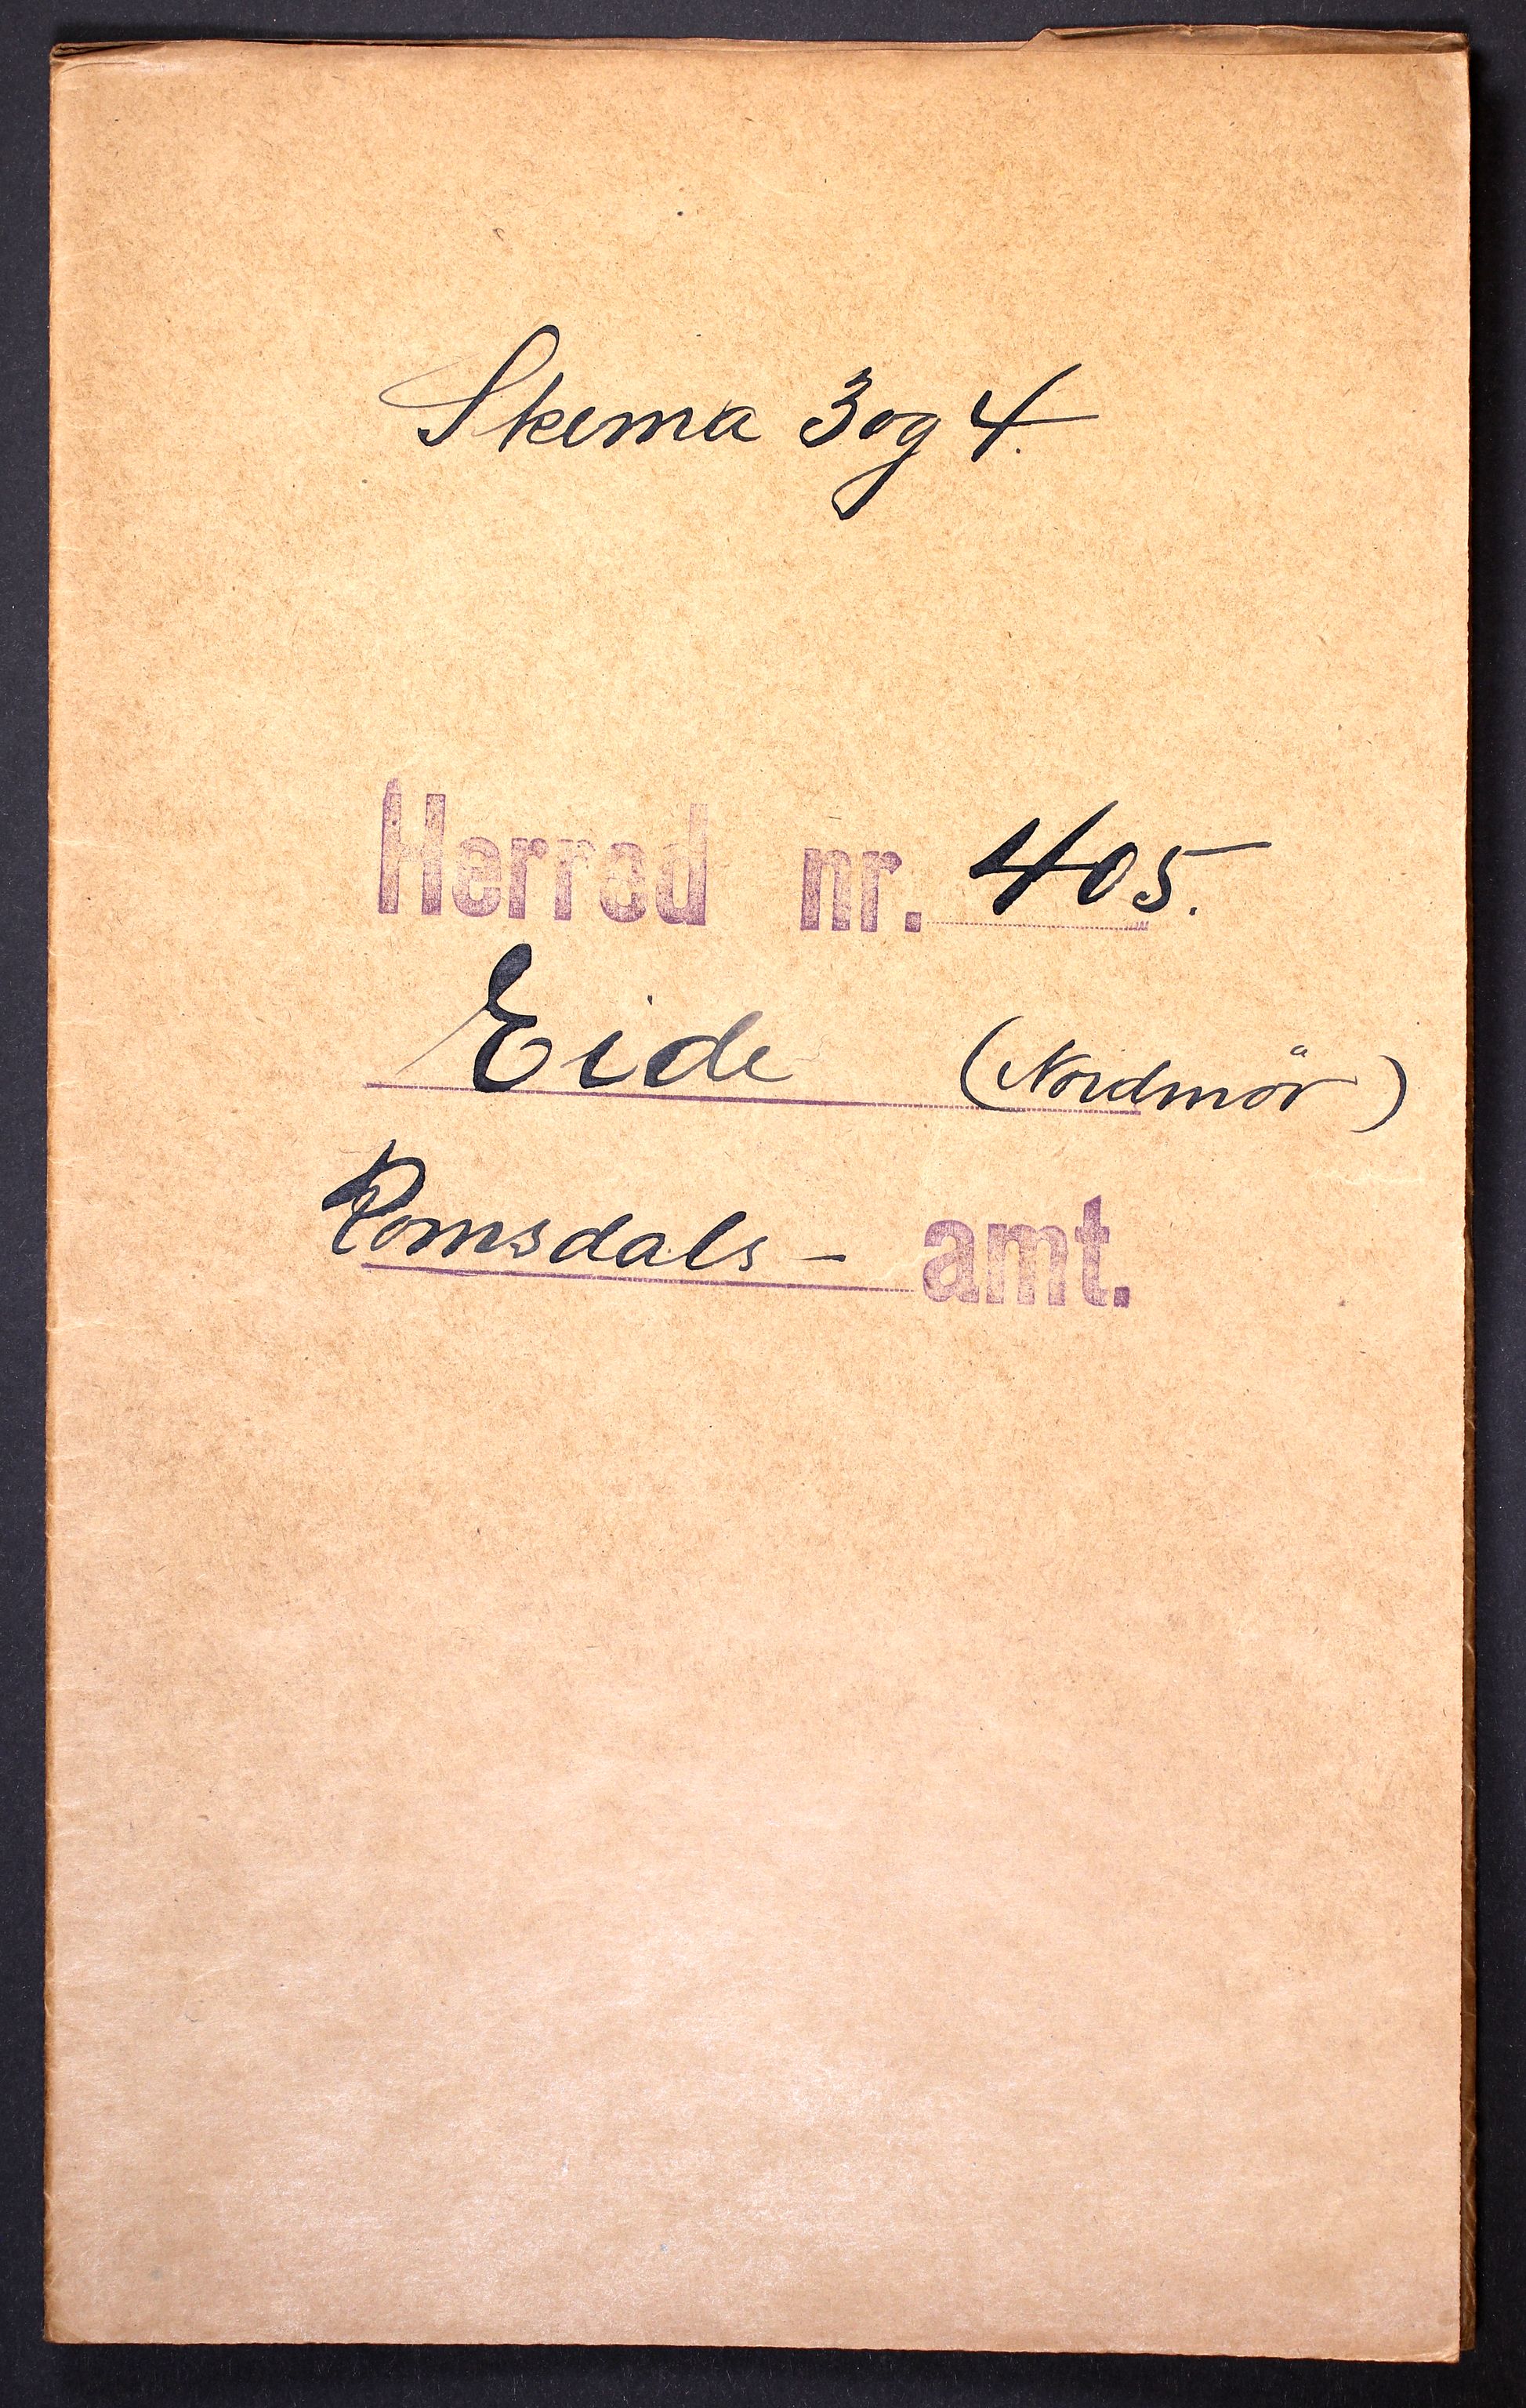 Skema 3 og 4.
Herred nr. 405.
Eide (Nordmör)
Romsdals - amt.